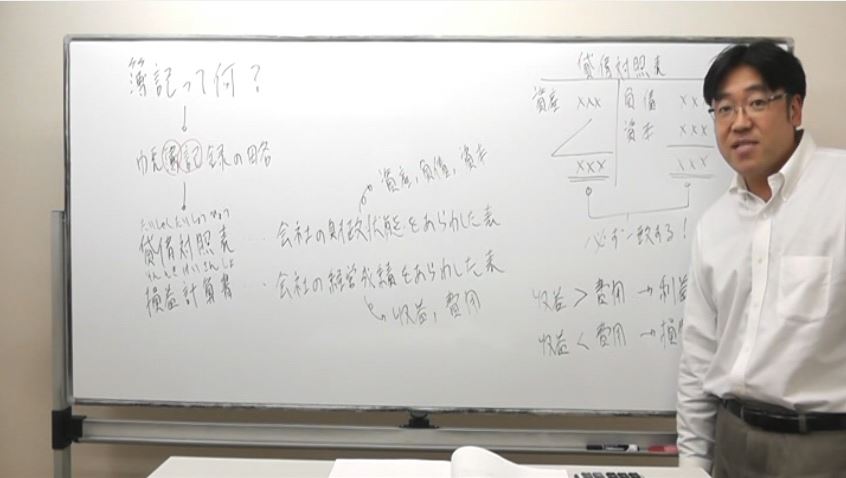 簿記って何?
帳簿記録の略
たいしゃくたいしょうひょう
貸借対照表 … 会社の財政状態をあらわした表
資産,負債,資本
そんえきけいさんしょ
損益計算書 … 会社の経営成績をあらわした表
収益,費用
貸借対照表
資産 xxx 負債 xx
資本 xxx
xxx xxx
必ず一致する!
収益 > 費用 → 利益
収益 < 費用 → 損